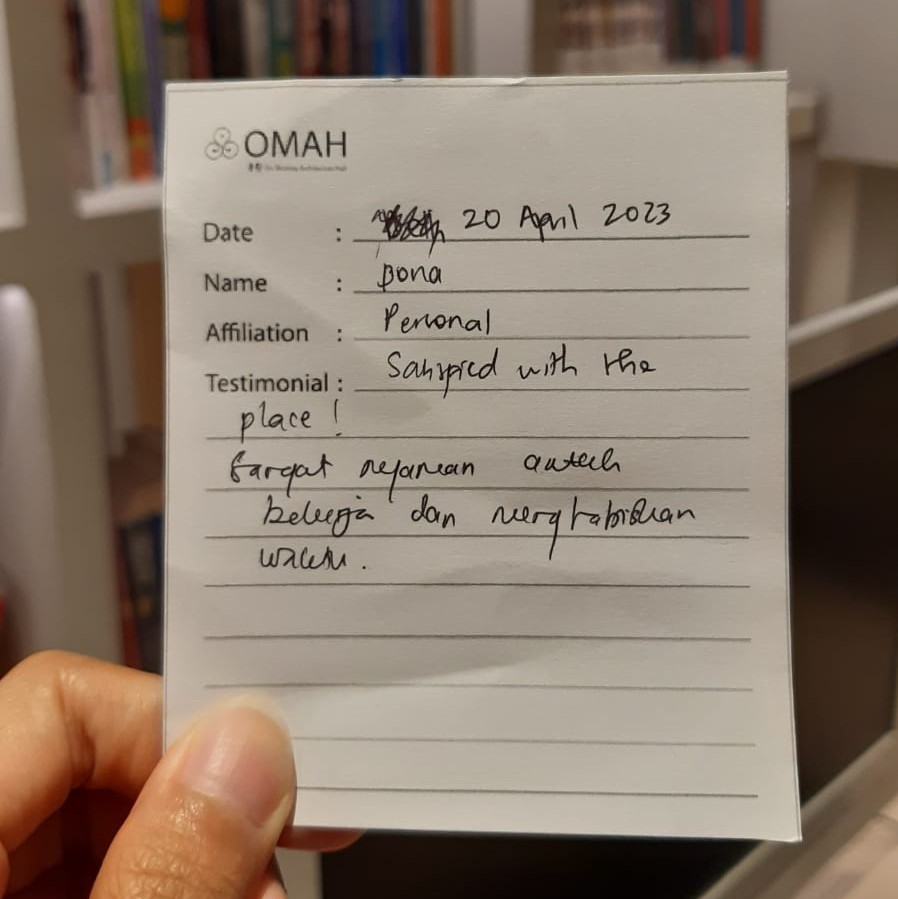 OMAH
Date : 20 April 2023
Name : Bona
Affiliation : Personal
Testimonial : Satisfied with the
place !
Sangat nyaman untuk
bekerja dan menghabiskan
waktu.